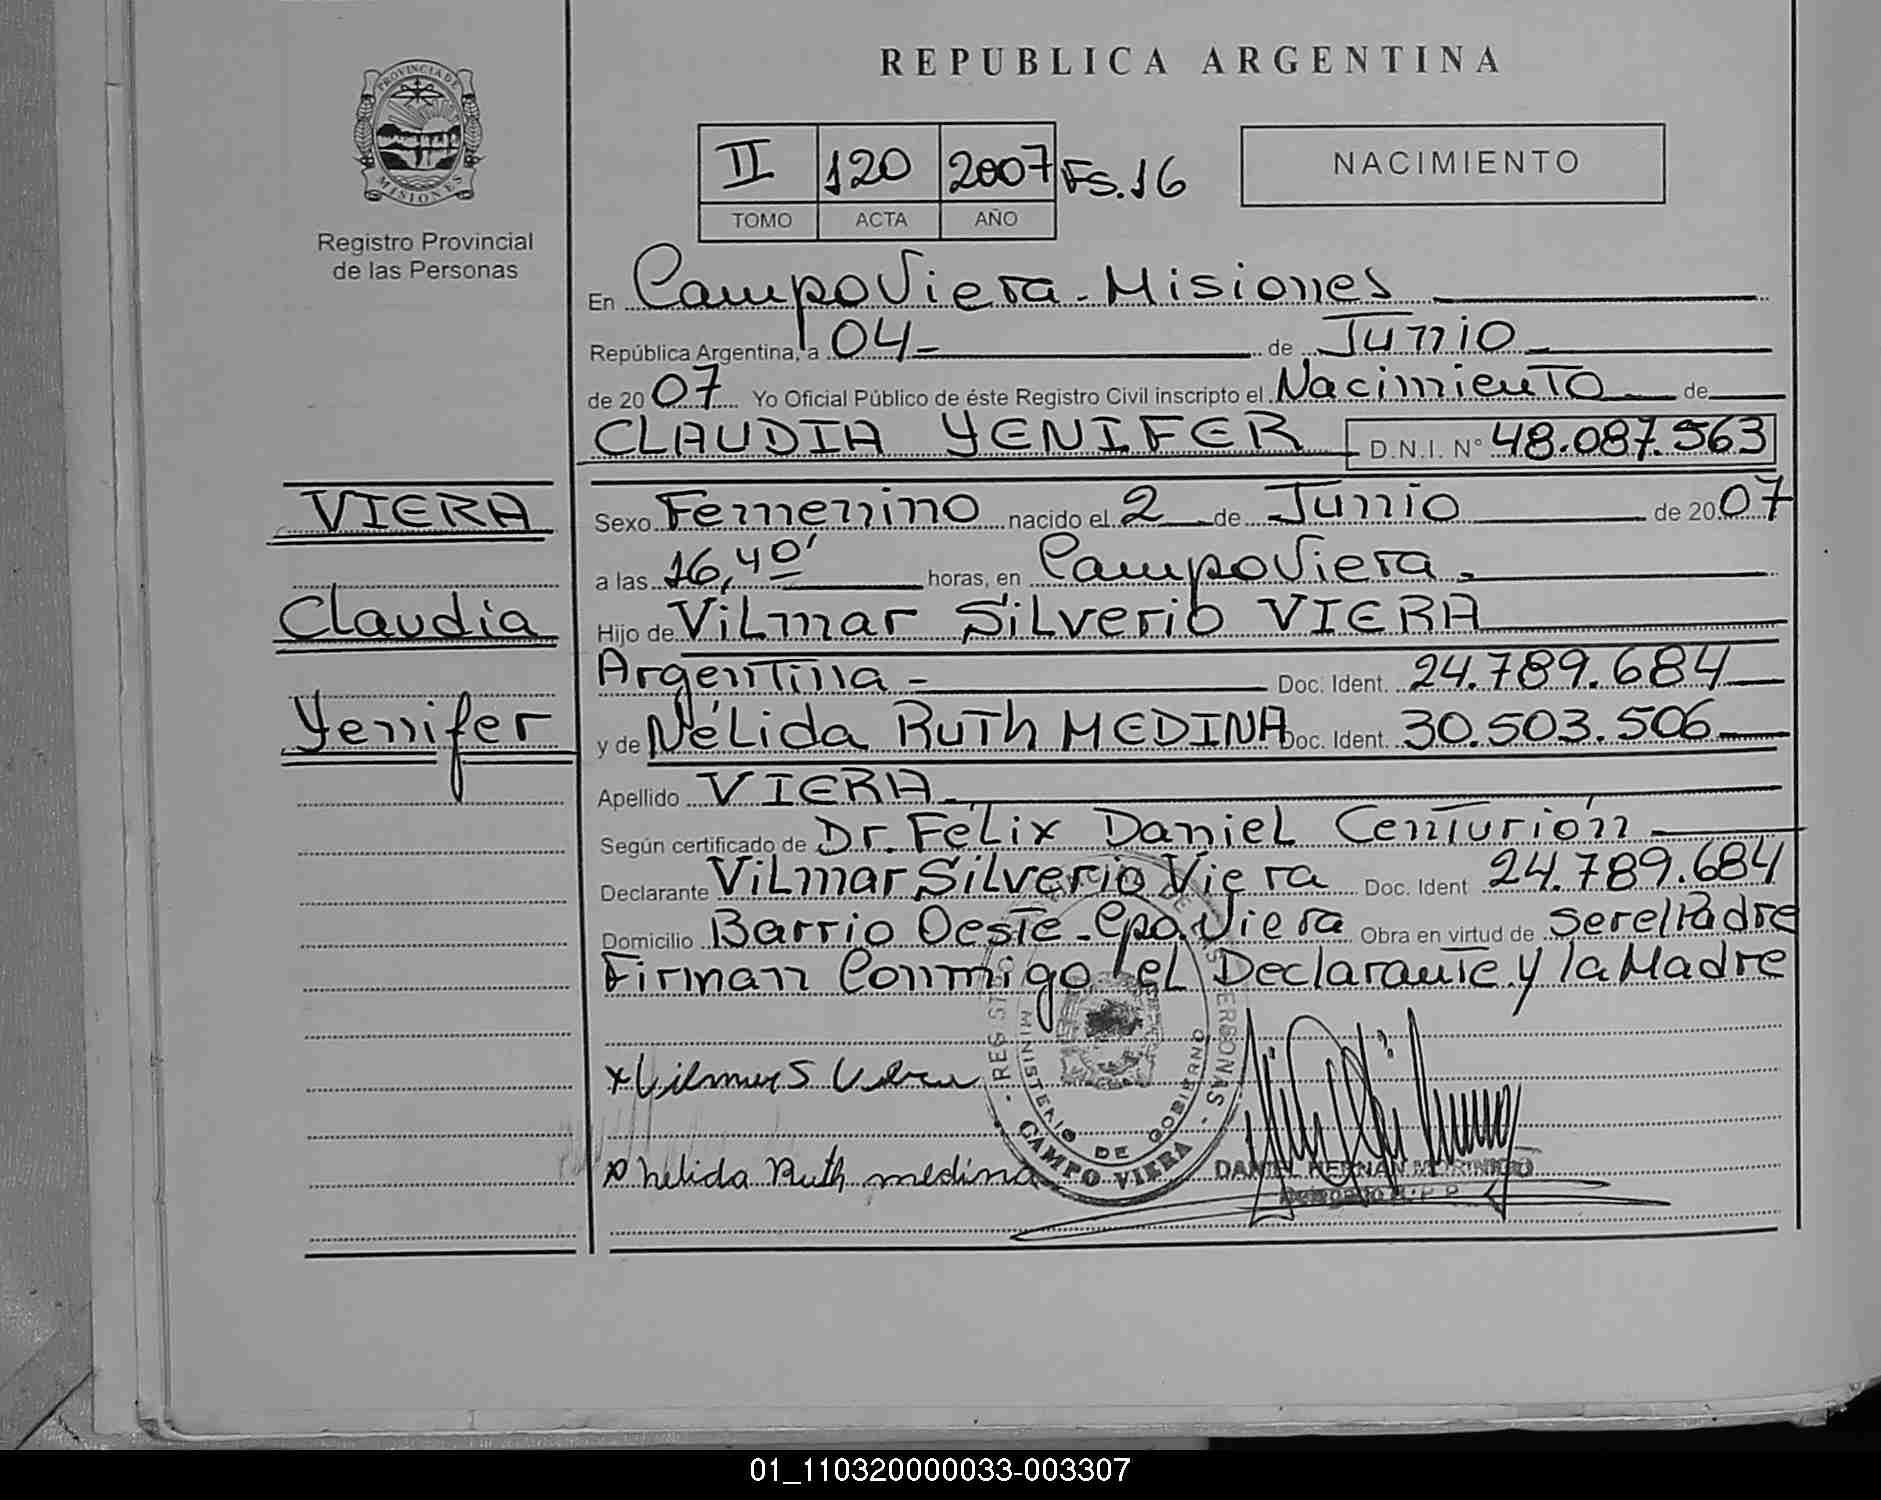 REPUBLICA ARGENTINA
PROVINCIA DE
MISIONES
Registro Provincial
de las Personas
II 120 2007 Fs. 16
TOMO ACTA AÑO
NACIMIENTO
En Campo Viera - Misiones
República Argentina, a 04 - de Junio
de 2007 Yo Oficial Público de éste Registro Civil inscripto el Nacimiento de
CLAUDIA YENIFER D.N.I. N° 48.087.563
VIERA
Claudia
Yenifer
Sexo Femenino nacido el 2 de Junio de 2007
a las 16,40' horas, en Campo Viera.
Hijo de Vilmar Silverio VIERA
Argentina - Doc. Ident. 24.789.684
y de Nélida Ruth MEDINA Doc. Ident. 30.503.506
Apellido VIERA
Según certificado de Dr. Félix Daniel Centurión
Declarante Vilmar Silverio Viera Doc. Ident 24.789.684
Domicilio Barrio Oeste - Cpo. Viera Obra en virtud de ser el Padre
Firman Conmigo el Declarante y la Madre
MINISTERIO DE GOBIERNO
CAMPO VIERA
x Vilmar S Viera
x Nelida Ruth medina
DANIEL HERNAN
01_110320000033-003307